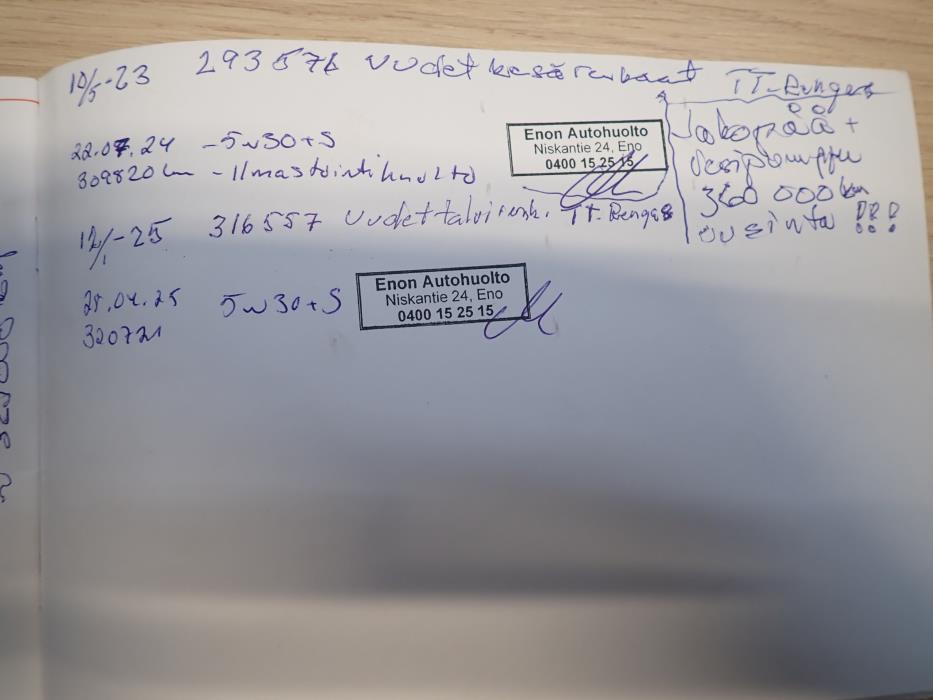 10/5-23 293576 uudet kesärenkaat TT-Rengas
22.07.24 -5w30+S
309820km - Ilmastointihuolto
Enon Autohuolto
Niskantie 24, Eno
0400 15 25 15
Jakopää +
vesipumppu
360 000km
uusinta !!!
12/1-25 316557 uudet talvirenk. TT-Rengas
25.04.25 5w30+S
320721
Enon Autohuolto
Niskantie 24, Eno
0400 15 25 15